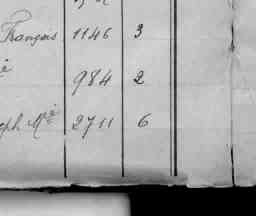 François 1146 3
984 2
eph Mie 2711 6